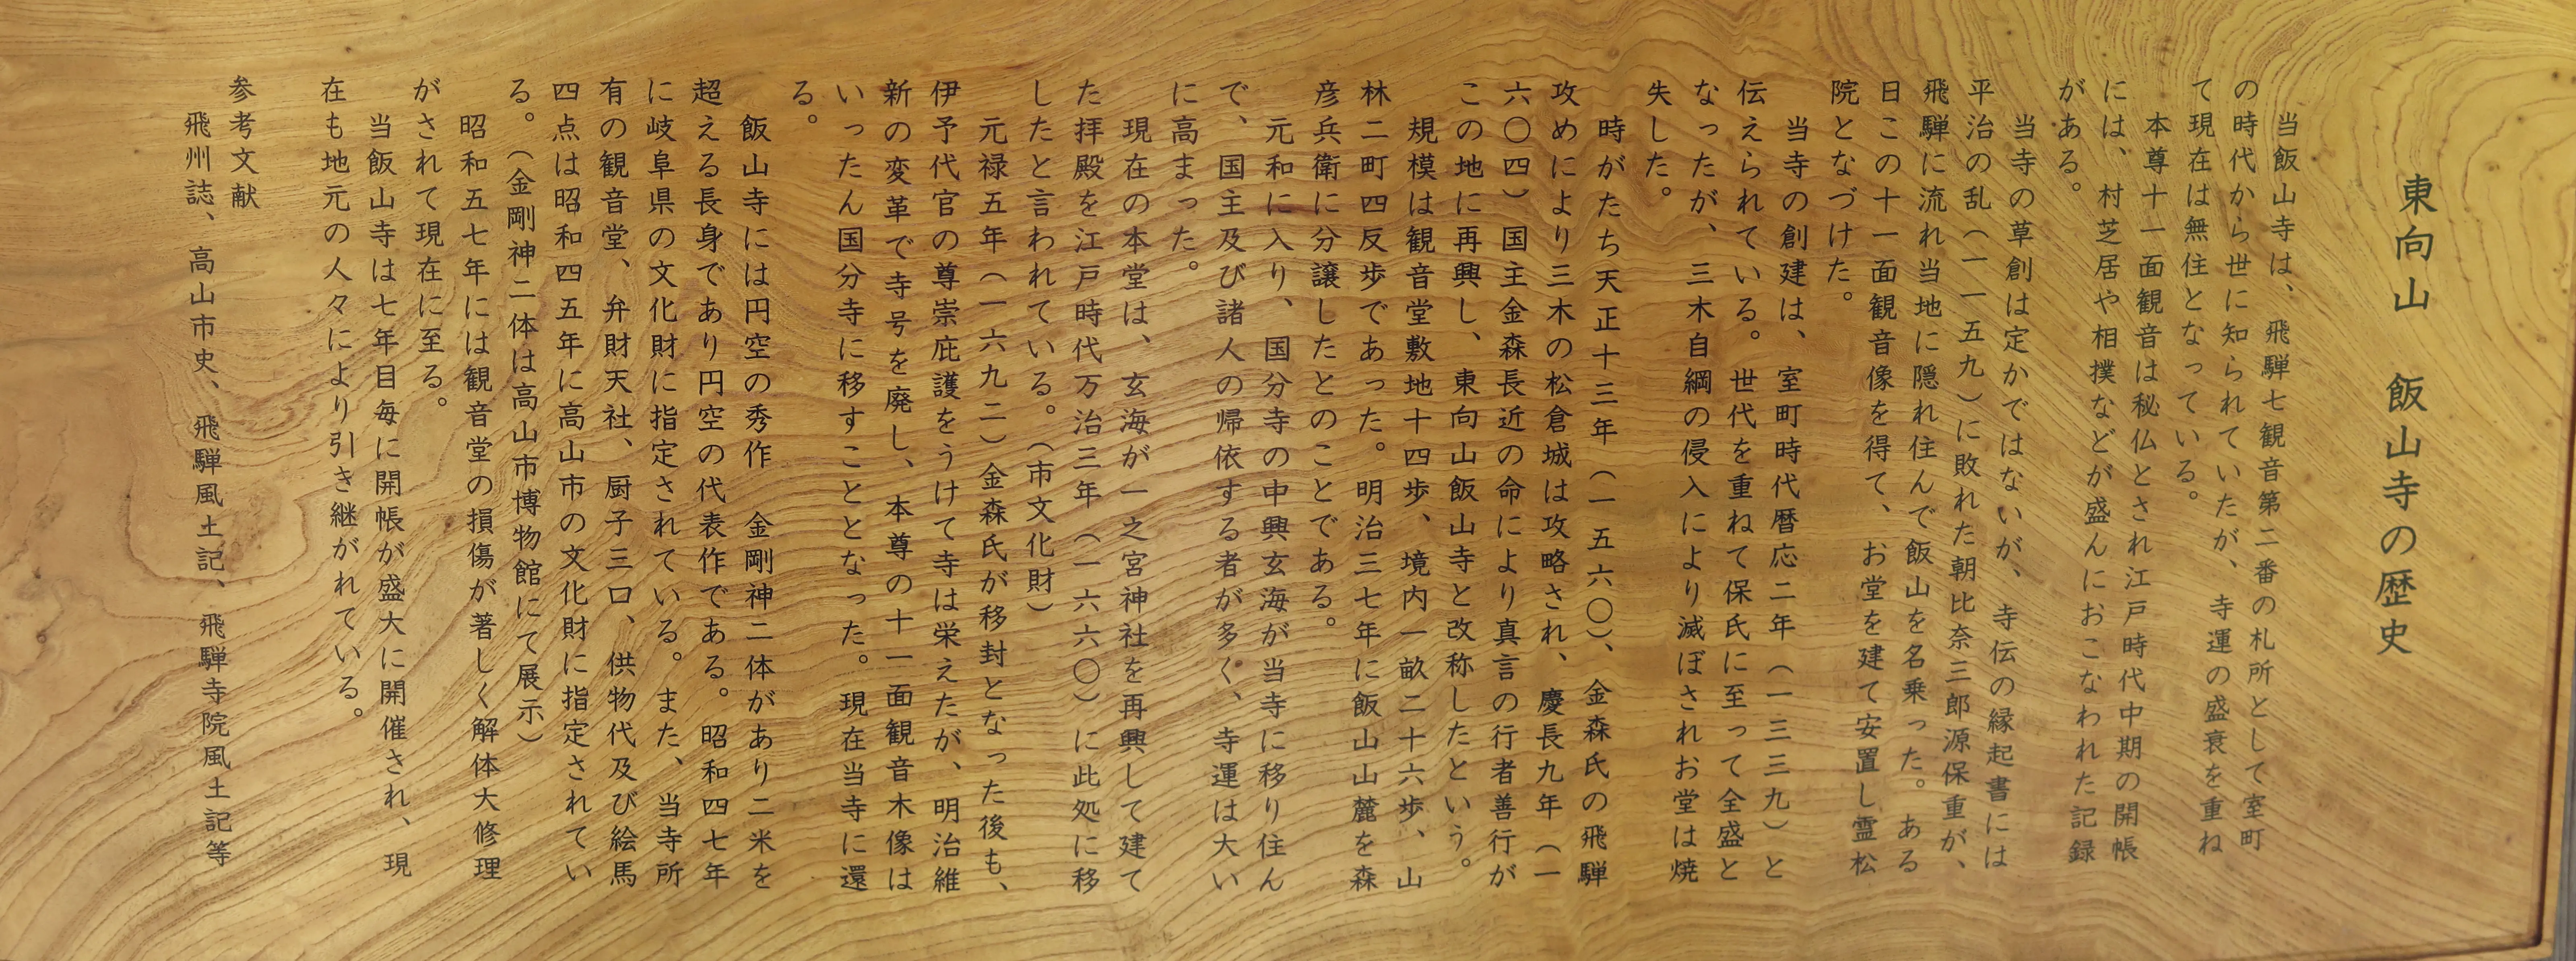 東向山　飯山寺の歴史
当飯山寺は、飛騨七観音第二番の札所として室町
の時代から世に知られていたが、寺運の盛衰を重ね
て現在は無住となっている。
本尊十一面観音は秘仏とされ江戸時代中期の開帳
には、村芝居や相撲などが盛んにおこなわれた記録
がある。
当寺の草創は定かではないが、寺伝の縁起書には
平治の乱（一一五九）に敗れた朝比奈三郎源保重が、
飛騨に流れ当地に隠れ住んで飯山を名乗った。ある
日この十一面観音像を得て、お堂を建て安置し霊松
院となづけた。
当寺の創建は、室町時代暦応二年（一三三九）と
伝えられている。世代を重ねて保氏に至って全盛と
なったが、三木自綱の侵入により滅ぼされお堂は焼
失した。
時がたち天正十三年（一五六〇）、金森氏の飛騨
攻めにより三木の松倉城は攻略され、慶長九年（一
六〇四）国主金森長近の命により真言の行者善行が
この地に再興し、東向山飯山寺と改称したという。
規模は観音堂敷地十四歩、境内一畝二十六歩、山
林二町四反歩であった。明治三七年に飯山山麓を森
彦兵衛に分譲したとのことである。
元和に入り、国分寺の中興玄海が当寺に移り住ん
で、国主及び諸人の帰依する者が多く、寺運は大い
に高まった。
現在の本堂は、玄海が一之宮神社を再興して建て
た拝殿を江戸時代万治三年（一六六〇）に此処に移
したと言われている。（市文化財）
元禄五年（一六九二）金森氏が移封となった後も、
伊予代官の尊崇庇護をうけて寺は栄えたが、明治維
新の変革で寺号を廃し、本尊の十一面観音木像は
いったん国分寺に移すこととなった。現在当寺に還
る。
飯山寺には円空の秀作　金剛神二体があり二米を
超える長身であり円空の代表作である。昭和四七年
に岐阜県の文化財に指定されている。また、当寺所
有の観音堂、弁財天社、厨子三口、供物代及び絵馬
四点は昭和四五年に高山市の文化財に指定されてい
る。（金剛神二体は高山市博物館にて展示）
昭和五七年には観音堂の損傷が著しく解体大修理
がされて現在に至る。
当飯山寺は七年目毎に開帳が盛大に開催され、現
在も地元の人々により引き継がれている。
参考文献
飛州誌、高山市史、飛騨風土記、飛騨寺院風土記等